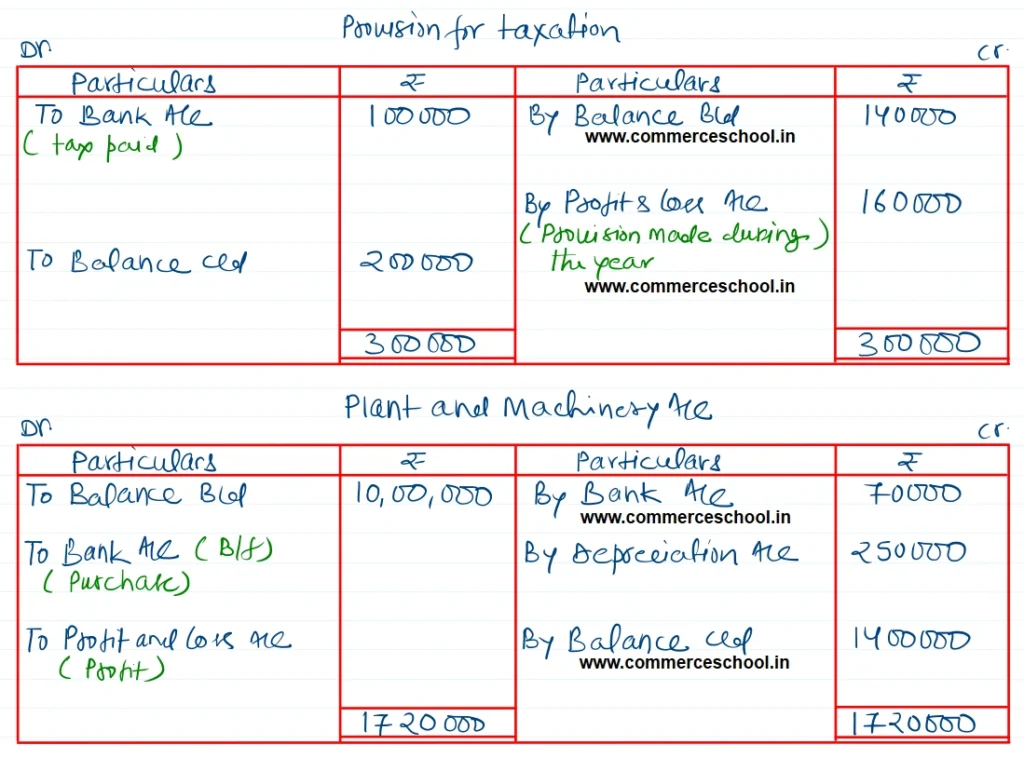 Provision for taxation
Dr. Cr.
Particulars ₹ Particulars ₹
To Bank A/c 100000 By Balance B/d 140000
(tax paid) www.commerceschool.in
By Profit & loss A/c 160000
(Provision made during)
To Balance c/d 200000 the year
www.commerceschool.in
300000 300000
Plant and Machinery A/c
Dr. Cr.
Particulars ₹ Particulars ₹
To Balance B/d 10,00,000 By Bank A/c 70000
www.commerceschool.in
To Bank A/c (B/f) By Depreciation A/c 250000
(Purchase)
To Profit and Loss A/c By Balance c/d 1400000
(Profit) www.commerceschool.in
1720000 1720000